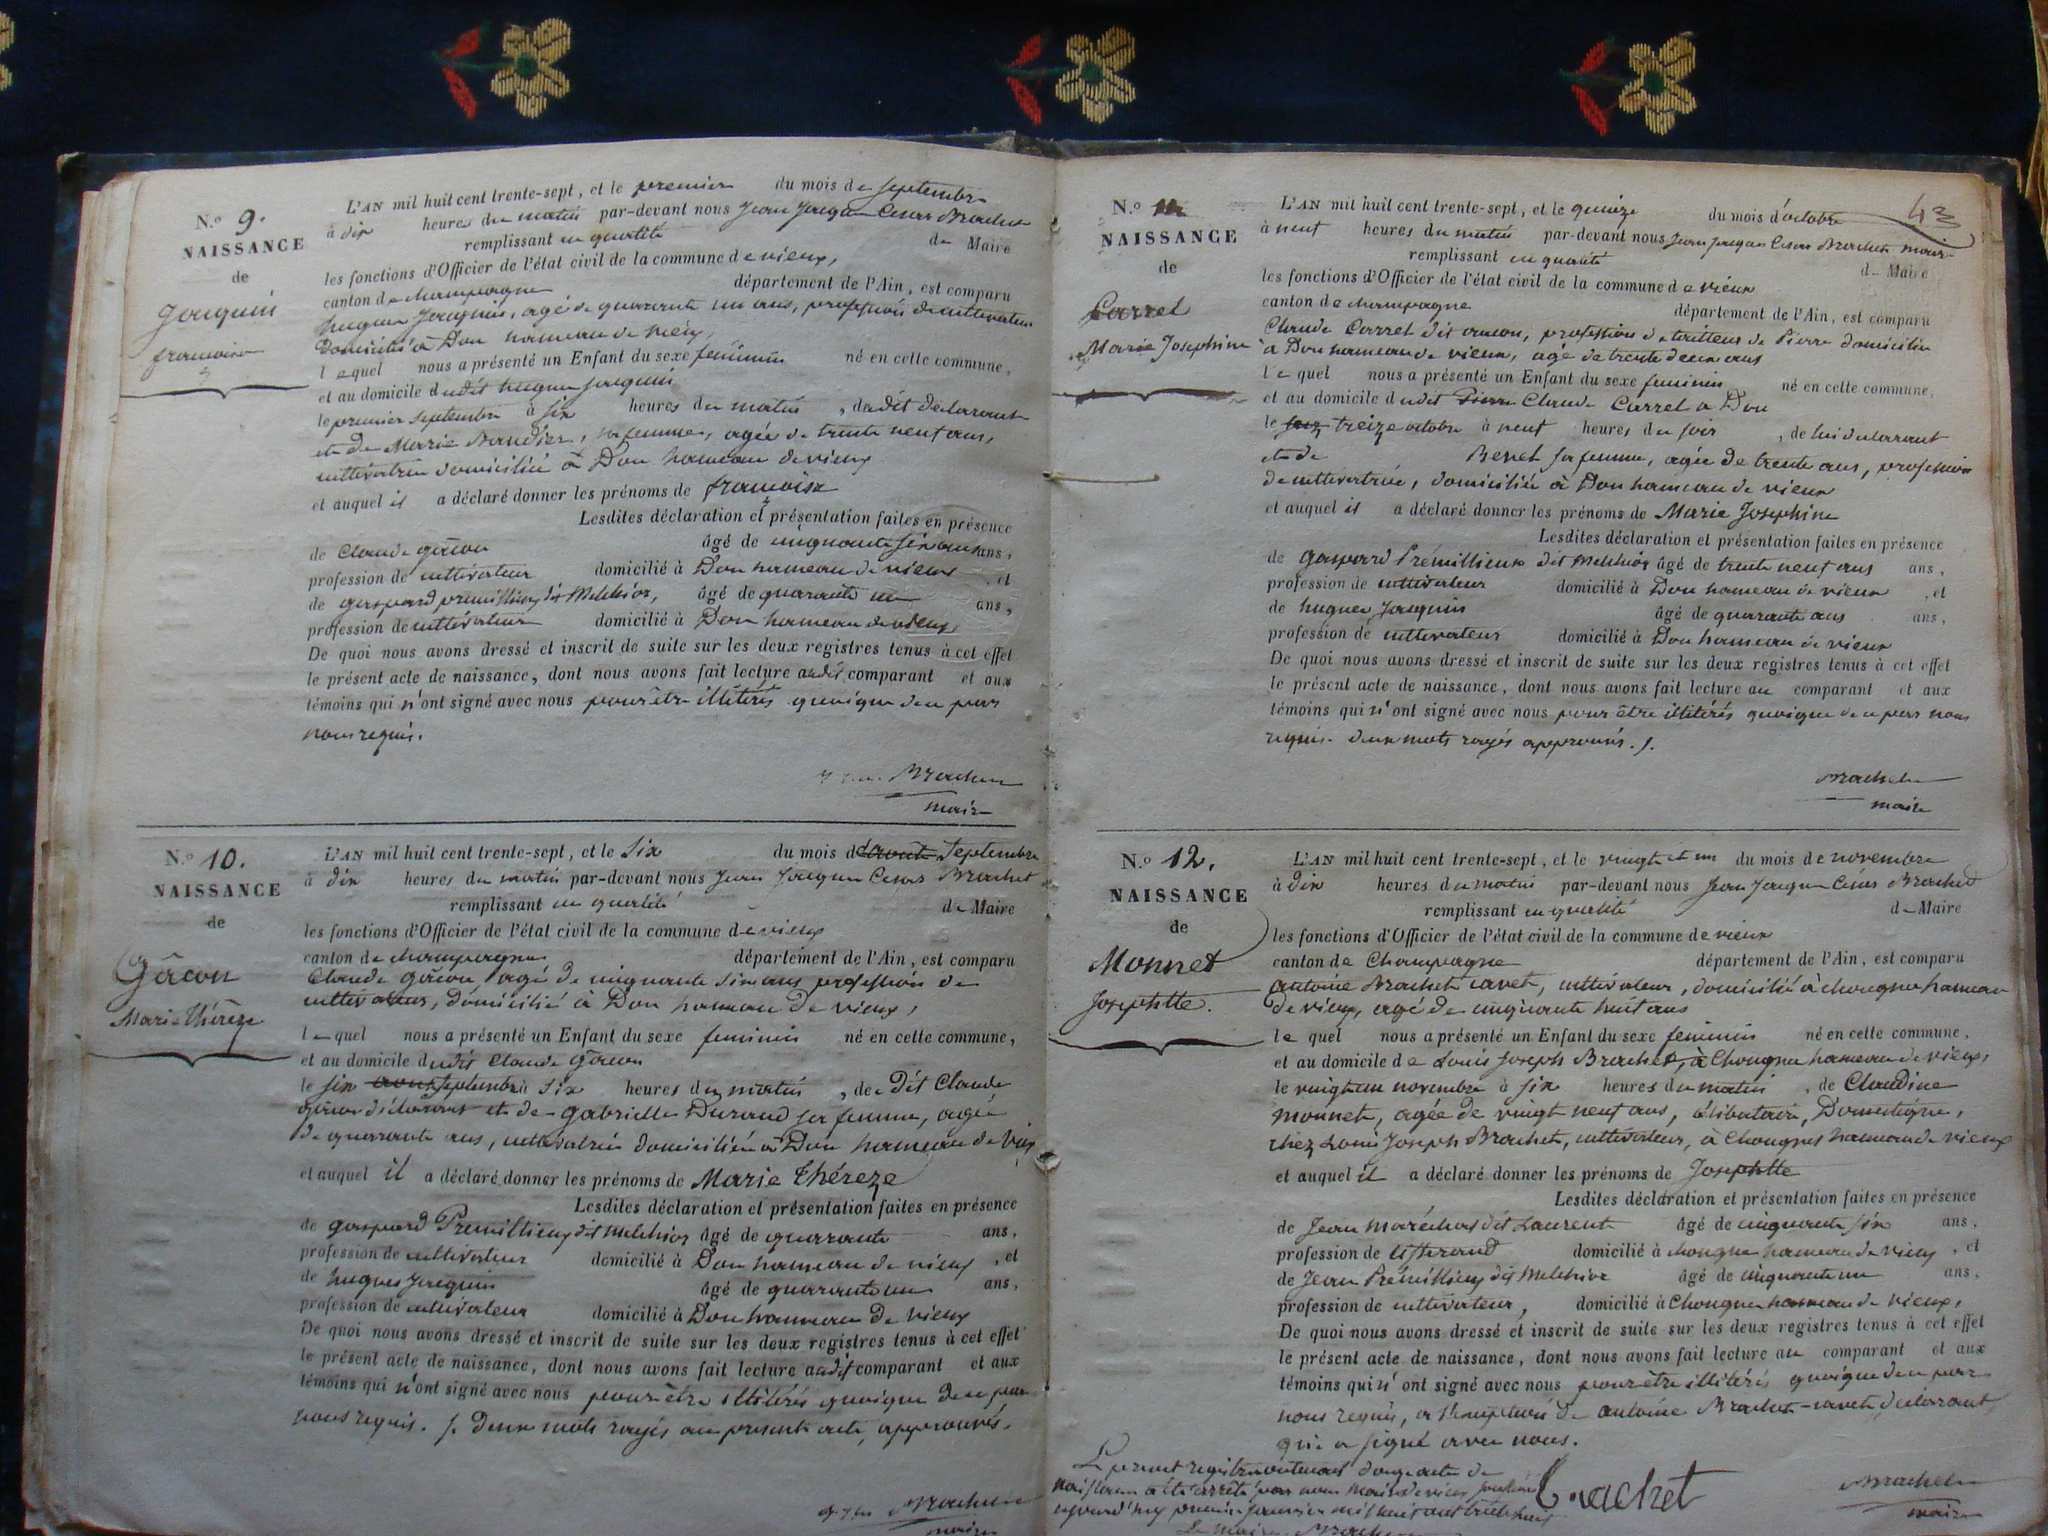 N.o 9.
NAISSANCE
de
Jacquin
francoise
L'AN mil huit cent trente-sept, et le premier du mois de septembre
à dix heures du matin par-devant nous Jean Jacques Cesar Brachet
remplissant en qualité de Maire
les fonctions d'Officier de l'état civil de la commune de vieux,
canton de champagne département de l'Ain, est comparu
hugues Jacquin, agé de quarante un ans, profession de cultivateur
domicilié à Don hameau de vieux,
lequel nous a présenté un Enfant du sexe feminin né en cette commune,
et au domicile dudit hugues Jacquin
le premier septembre à six heures du matin, dudit déclarant
et de Marie sa femme, agée de trente neuf ans,
cultivatrice domiciliée à Don hameau de vieux
et auquel il a déclaré donner les prénoms de francoise
Lesdites déclaration et présentation faites en présence
de Claude gâcon âgé de cinquante six ans ans,
profession de cultivateur domicilié à Don hameau de vieux, et
de gaspard premillieux dit Melchior, âgé de quarante un ans,
profession de cultivateur domicilié à Don hameau de vieux
De quoi nous avons dressé et inscrit de suite sur les deux registres tenus à cet effet
le présent acte de naissance, dont nous avons fait lecture audit comparant et aux
témoins qui n'ont signé avec nous pour être illitérés quoique de ce par
nous requis.
Brachet
maire
N.o 10.
NAISSANCE
de
Gâcon
Marie thérèze
L'AN mil huit cent trente-sept, et le six du mois d'aout septembre
à dix heures du matin par-devant nous Jean Jacques Cesar Brachet
remplissant en qualité de Maire
les fonctions d'Officier de l'état civil de la commune de vieux
canton de champagne département de l'Ain, est comparu
Claude gâcon agé de cinquante six ans profession de
cultivateur, domicilié à Don hameau de vieux,
lequel nous a présenté un Enfant du sexe feminin né en cette commune,
et au domicile dudit Claude gâcon
le six aout septembre à six heures du matin, de Dit Claude
gâcon déclarant et de gabrielle Durand sa femme, agée
de quarante ans, cultivatrice domiciliée à Don hameau de vieux
et auquel il a déclaré donner les prénoms de Marie théreze
Lesdites déclaration et présentation faites en présence
de gaspard Premillieux dit Melchior âgé de quarante ans,
profession de cultivateur domicilié à Don hameau de vieux, et
de hugues Jacquin âgé de quarante un ans,
profession de cultivateur domicilié à Don hameau de vieux
De quoi nous avons dressé et inscrit de suite sur les deux registres tenus à cet effet
le présent acte de naissance, dont nous avons fait lecture audit comparant et aux
témoins qui n'ont signé avec nous pour être illitérés quoique de ce par
nous requis. /. Deux mots rayés au present acte, approuvés.
Brachet
maire
43
N.o 11
NAISSANCE
de
Carrel
Marie Josephine
L'AN mil huit cent trente-sept, et le quinze du mois d'octobre
à neuf heures du matin par-devant nous Jean Jacques Cesar Brachet maire
remplissant en qualité de Maire
les fonctions d'Officier de l'état civil de la commune de vieux
canton de champagne département de l'Ain, est comparu
Claude Carrel dit, profession de tailleur de Pierre domicilié
à Don hameau de vieux, agé de trente deux ans
lequel nous a présenté un Enfant du sexe feminin né en cette commune,
et au domicile dudit Pierre Claude Carrel a Don
le treize octobre à neuf heures du soir, de lui déclarant
et de Benet sa femme, agée de trente ans, profession
de cultivatrice, domiciliée à Don hameau de vieux
et auquel il a déclaré donner les prénoms de Marie Josephine
Lesdites déclaration et présentation faites en présence
de gaspard Prémillieux dit Melchior âgé de trente neuf ans ans,
profession de cultivateur domicilié à Don hameau de vieux, et
de hugues Jacquin âgé de quarante ans ans,
profession de cultivateur domicilié à Don hameau de vieux
De quoi nous avons dressé et inscrit de suite sur les deux registres tenus à cet effet
le présent acte de naissance, dont nous avons fait lecture au comparant et aux
témoins qui n'ont signé avec nous pour être illitérés quoique de ce par nous
requis. deux mots rayés approuvés. /.
Brachet
maire
N.o 12.
NAISSANCE
de
Monnet
Josephtte.
L'AN mil huit cent trente-sept, et le vingt et un du mois de novembre
à dix heures du matin par-devant nous Jean Jacques Césas Brachet
remplissant en qualité de Maire
les fonctions d'Officier de l'état civil de la commune de vieux
canton de Champagne département de l'Ain, est comparu
antoine Brachet cavet, cultivateur, domicilié à chongnes hameau
de vieux, agé de cinquante huit ans
lequel nous a présenté un Enfant du sexe feminin né en cette commune,
et au domicile de Louis Joseph Brachet, à Chongnes hameau de vieux,
le vingt un novembre à six heures du matin, de Claudine
monnet, agée de vingt neuf ans, célibataire, Domestique,
chez Louis Joseph Brachet, cultivateur, à Chongnes hameau de vieux
et auquel il a déclaré donner les prénoms de Josephtte
Lesdites déclaration et présentation faites en présence
de Jean maréchal dit Laurent âgé de cinquante six ans,
profession de tisserand domicilié à chongnes hameau de vieux, et
de Jean Prémillieux dit Melchior âgé de cinquante un ans,
profession de cultivateur, domicilié à Chongnes hameau de vieux,
De quoi nous avons dressé et inscrit de suite sur les deux registres tenus à cet effet
le présent acte de naissance, dont nous avons fait lecture au comparant et aux
témoins qui n'ont signé avec nous pour etre illitérés quoique de ce par
nous requis, a l'exception de antoine Brachet-cavet, déclarant
qui a signé avec nous.
Le present registre contenant douze actes de
naissance a été arrêté par nous maire de vieux
aujourd'huy premier janvier mil huit cent trente huit
Le maire Brachet
Brachet
Brachet
maire